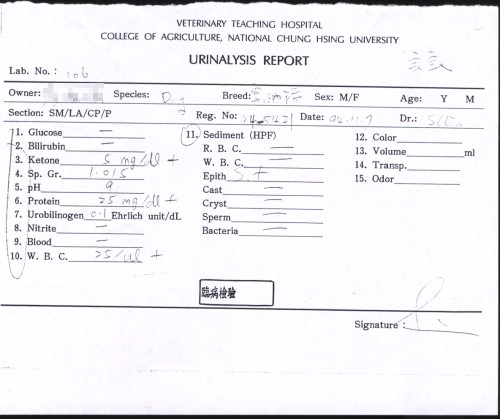 VETERINARY TEACHING HOSPITAL
COLLEGE OF AGRICULTURE, NATIONAL CHUNG HSING UNIVERSITY
URINALYSIS REPORT
Lab. No. : 106
Owner: Species: Dog Breed: Sex: M/F Age: Y M
Section: SM/LA/CP/P Reg. No: Date: 94.11.9 Dr.:
1. Glucose —
2. Bilirubin —
3. Ketone 5 mg/dl +
4. Sp. Gr. 1.015
5. pH 9
6. Protein 25 mg/dl +
7. Urobilinogen 0.1 Ehrlich unit/dL
8. Nitrite —
9. Blood —
10. W. B. C. 25/ul +
11. Sediment (HPF)
R. B. C. —
W. B. C. —
Epith S.+
Cast —
Cryst —
Sperm —
Bacteria —
12. Color
13. Volume ml
14. Transp.
15. Odor
臨病檢驗
Signature :